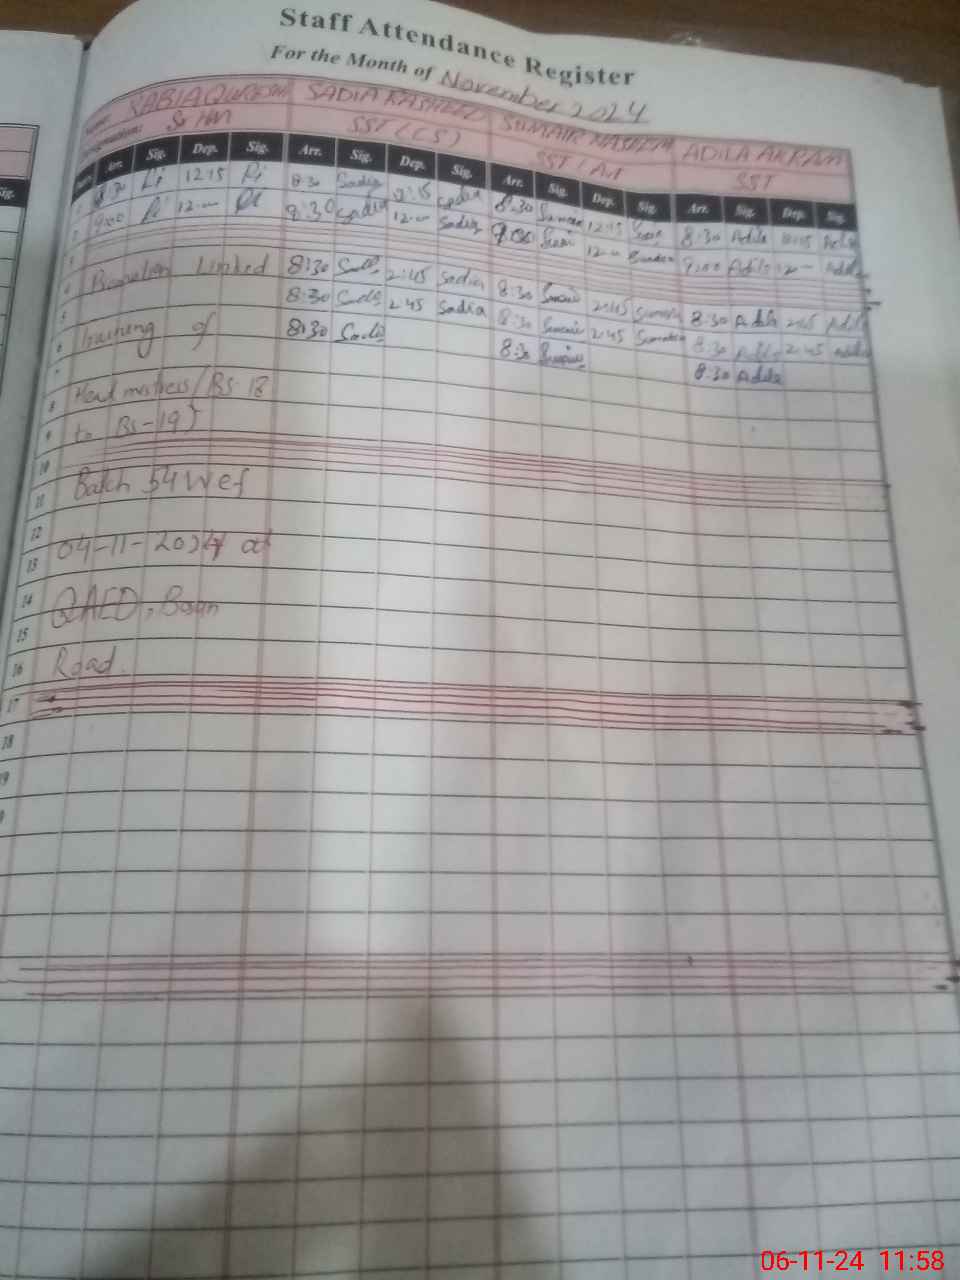 Staff Attendance Register
For the Month of November 2024
Name: RABIA QURESHI SADIA RASHEED SUMAIR NASEEM ADILA AKRAM
Sr HM SST (CS) SST (Art SST
Arr. Sig. Dep. Sig. Arr. Sig. Dep. Sig. Arr. Sig. Dep. Sig. Arr. Sig. Dep. Sig.
1 8:30 12:15 8:30 Sadia 12:15 Sadia 8:30 12:15 8:30 Adila 12:15 Adila
2 9:00 12:00 8:30 Sadia 12:00 Sadia 9:00 12:00 9:00 Adila 12:00 Adila
3
4 Linked 8:30 2:45 Sadia 8:30 2:45 8:30 Adila 2:45 Adila
5 8:30 2:45 Sadia 8:30 2:45 8:30 Adila 2:45 Adila
6 of 8:30 8:30 8:30 Adila
7
8 Head mistress/Bs-18
9 to Bs-19)
10
11 Batch 54 wef
12
13 04-11-2024 at
14
15 QAED, Bosan
16 Road.
17
18
06-11-24 11:58